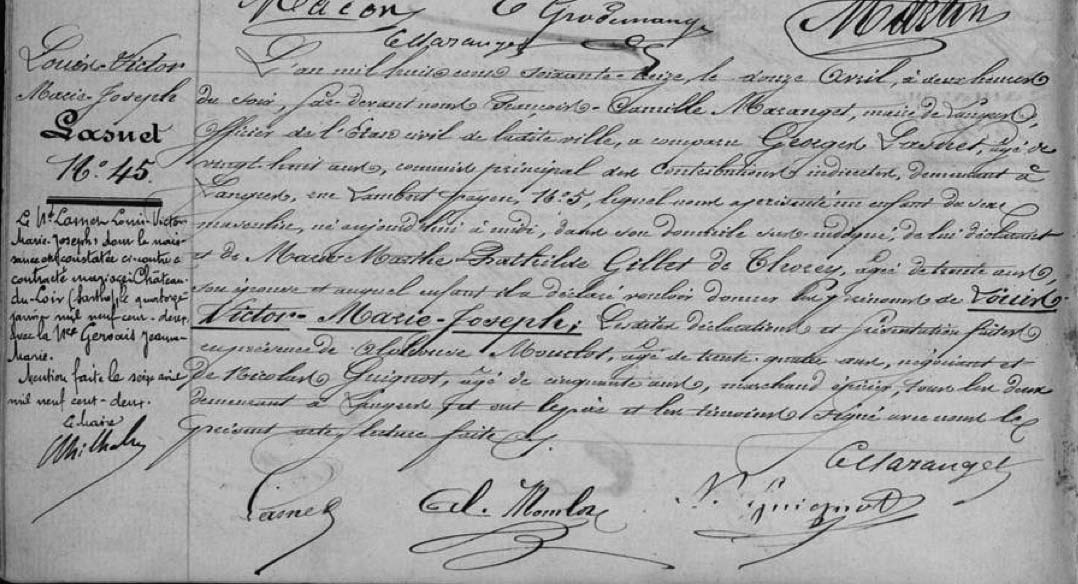 Macon E Grosdemange Martin
CMaranget
Louis-Victor
Marie-Joseph
Lasnet
N.o 45.
Le Sr Lasnet Louis-Victor-
Marie-Joseph, dont la nais-
sance est constatée ci-contre a
contracté mariage à Château-
du-Loir (Sarthe) le quatorze
janvier mil neuf cent-deux
avec la Melle Gervais Jeanne-
Marie.
Mention faite le seize
mil neuf cent-deux.
Le Maire
L'an mil huit cent soixante-seize, le douze Avril, à deux heures
du soir, par devant nous François-Camille Maranget, maire de Langres,
officier de l'Etat civil de ladite ville, a comparu Georges Lasnet, âgé de
vingt-huit ans, commis principal des Contributions indirectes, demeurant à
Langres, rue Lambert Payen, N.o 5, lequel nous a présenté un enfant du sexe
masculin, né aujourd'hui à midi, dans son domicile sus-indiqué, de lui déclarant
et de Marie-Marthe Bathilde Gillet de Thorey, âgée de trente ans,
son épouse et auquel enfant il a déclaré vouloir donner les prénoms de Louis-
Victor-Marie-Joseph; Lesdites déclaration et présentation faites
en présence de Mouclot, âgé de trente-quatre ans, négociant et
de Nicolas Guignot, âgé de cinquante ans, marchand épicier, tous les deux
demeurant à Langres et ont le père et les témoins signé avec nous le
présent acte, lecture faite.
CMaranget
Lasnet Ad. Mouclot N. Guignot